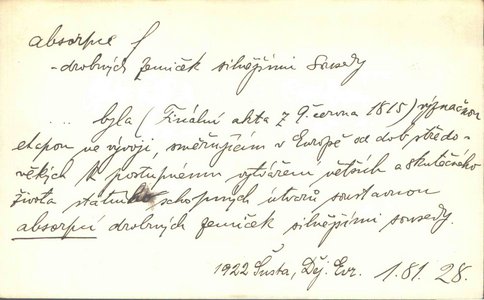 absorpce f
- drobných zemiček silnějšími sousedy
... byla (Finální akta z 9. června 1815) význačnou
etapou ve vývoji, směřujícím v Evropě od dob středo-
věkých k postupnému vytváření větších a skutečného
života státního schopných útvarů soustavnou
absorpcí drobných zemiček silnějšími sousedy.
1922 Šusta, Děj. Evr. 1.81. 28.